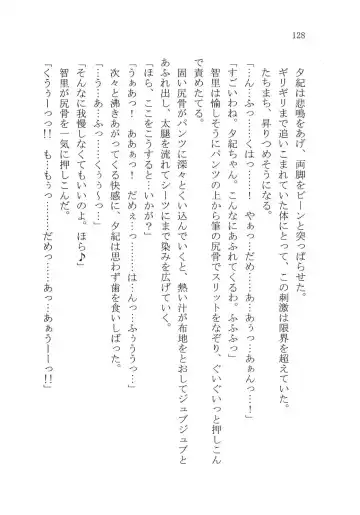 128
夕紀は悲鳴をあげ、両脚をピーンと突っぱらせた。
ギリギリまで追いこまれていた体にとって、この刺激は限界を超えていた。
たちまち、昇りつめそうになる。
「…ん…ふっ…くはっ……！　やぁっ…だめ…あ…あぅっ…あぁんっ！」
「すごいわね。夕紀ちゃん。こんなにあふれてくるわ。ふふふっ」
智里は愉しそうにパンツの上から筆の尻骨でスリットをなぞり、ぐいぐいっと押しこん
で責めたてる。
固い尻骨がパンツに深々とくい込んでいくと、熱い汁が布地をとおしてジュブジュブと
あふれ出し、太腿を流れてシーツにまで染みを広げていく。
「ほら、ここをこうすると…いかが？」
「うぁあっ！　ああぁっ！　だめぇ…っ……は…んっ…ふぅぅううっ…」
次々と沸きあがってくる快感に、夕紀は思わず歯を食いしばった。
「…う…あ…ふっ…くぅぅ～っ…」
「そんなに我慢しなくてもいいのよ。ほら♪」
智里が尻骨を一気に押しこんだ。
「くうぅーっっ!!　も…もぅっ……だめっ…あっ…あぁうーーっ!!」